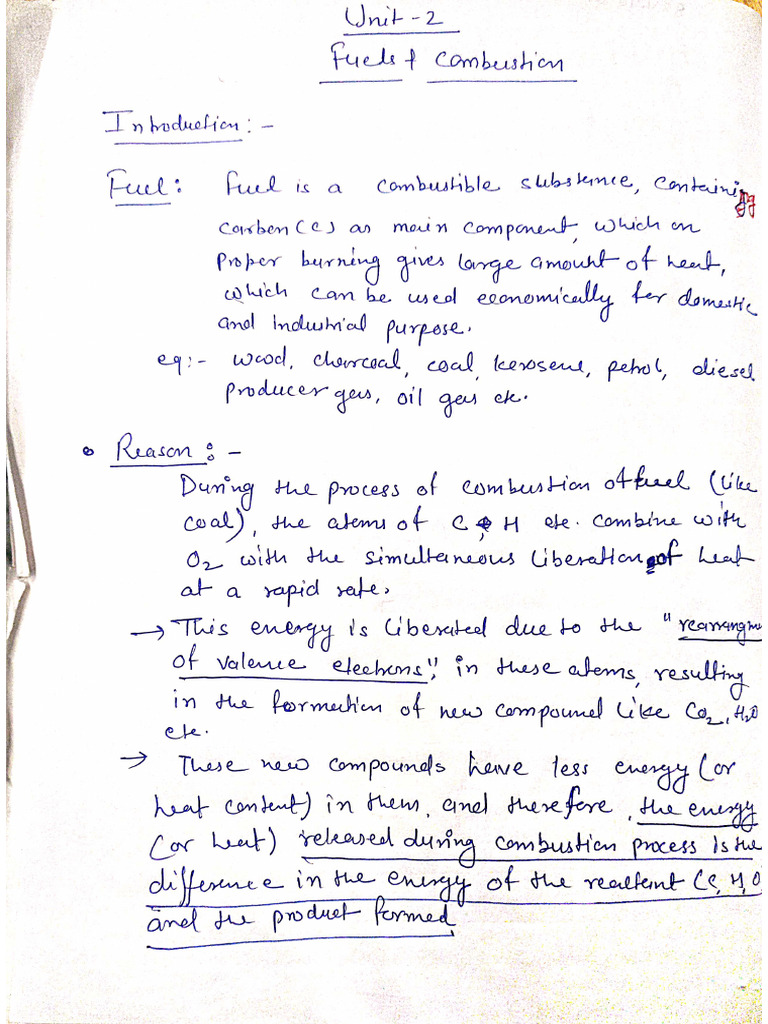 Unit-2
Fuels & Combustion
Introduction:-
Fuel: Fuel is a combustible substance, containing
carbon (C) as main component, which on
proper burning gives large amount of heat,
which can be used economically for domestic
and industrial purpose.
eg:- wood, charcoal, coal, kerosene, petrol, diesel
producer gas, oil gas etc.
• Reason:-
During the process of combustion of fuel (like
coal), the atoms of C, H etc. combine with
O2 with the simultaneous liberation of heat
at a rapid rate.
→ This energy is liberated due to the "rearrangme
of valence electrons", in these atoms, resulting
in the formation of new compound like CO2, H2O
etc.
→ These new compounds have less energy (or
heat content) in them, and therefore, the energy
(or heat) released during combustion process is the
difference in the energy of the reactent (C, H, O
and the product formed